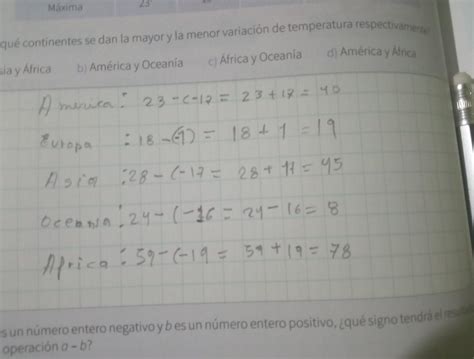 Máxima 23
qué continentes se dan la mayor y la menor variación de temperatura respectivamente
sia y África b) América y Oceanía c) África y Oceanía d) América y África
America: 23-(-17 = 23+17 = 40
Europa : 18-(-1) = 18 + 1 = 19
Asia : 28-(-17 = 28 + 17 = 45
Oceania : 24-(-16 = 24-16 = 8
Africa : 59-(-19 = 59 + 19 = 78
s un número entero negativo y b es un número entero positivo, ¿qué signo tendrá el
operación a – b?